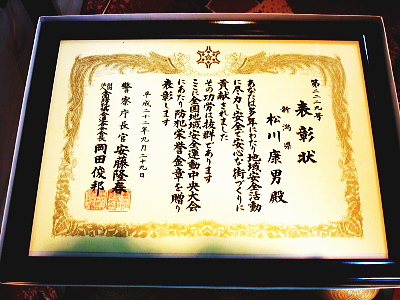 第二二二九号
表彰状
新潟県
松川康男殿
あなたは多年にわたり地域安全活動
に尽力し安全で安心な街づくりに
貢献されました
その功労は抜群であります
ここに全国地域安全運動中央大会
にあたり防犯栄誉金章を贈り
表彰します
平成二十二年九月二十九日
警察庁長官 安藤隆春
岡田俊邦